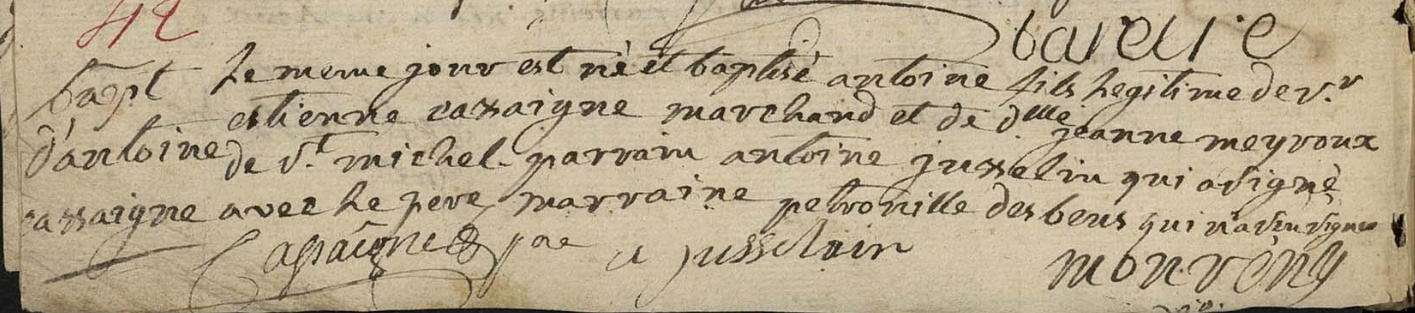 42
bapt
d'antoine
cassaigne
Le meme jour est né et baptisé antoine fils legitime de sr
estienne cassaigne marchand et de dlle jeanne meyroux
de st michel. parrain antoine jusselin qui a signé
avec le pere marraine petronille desbens qui n'a seu signer
Cassaigne pere a jusselain monrény